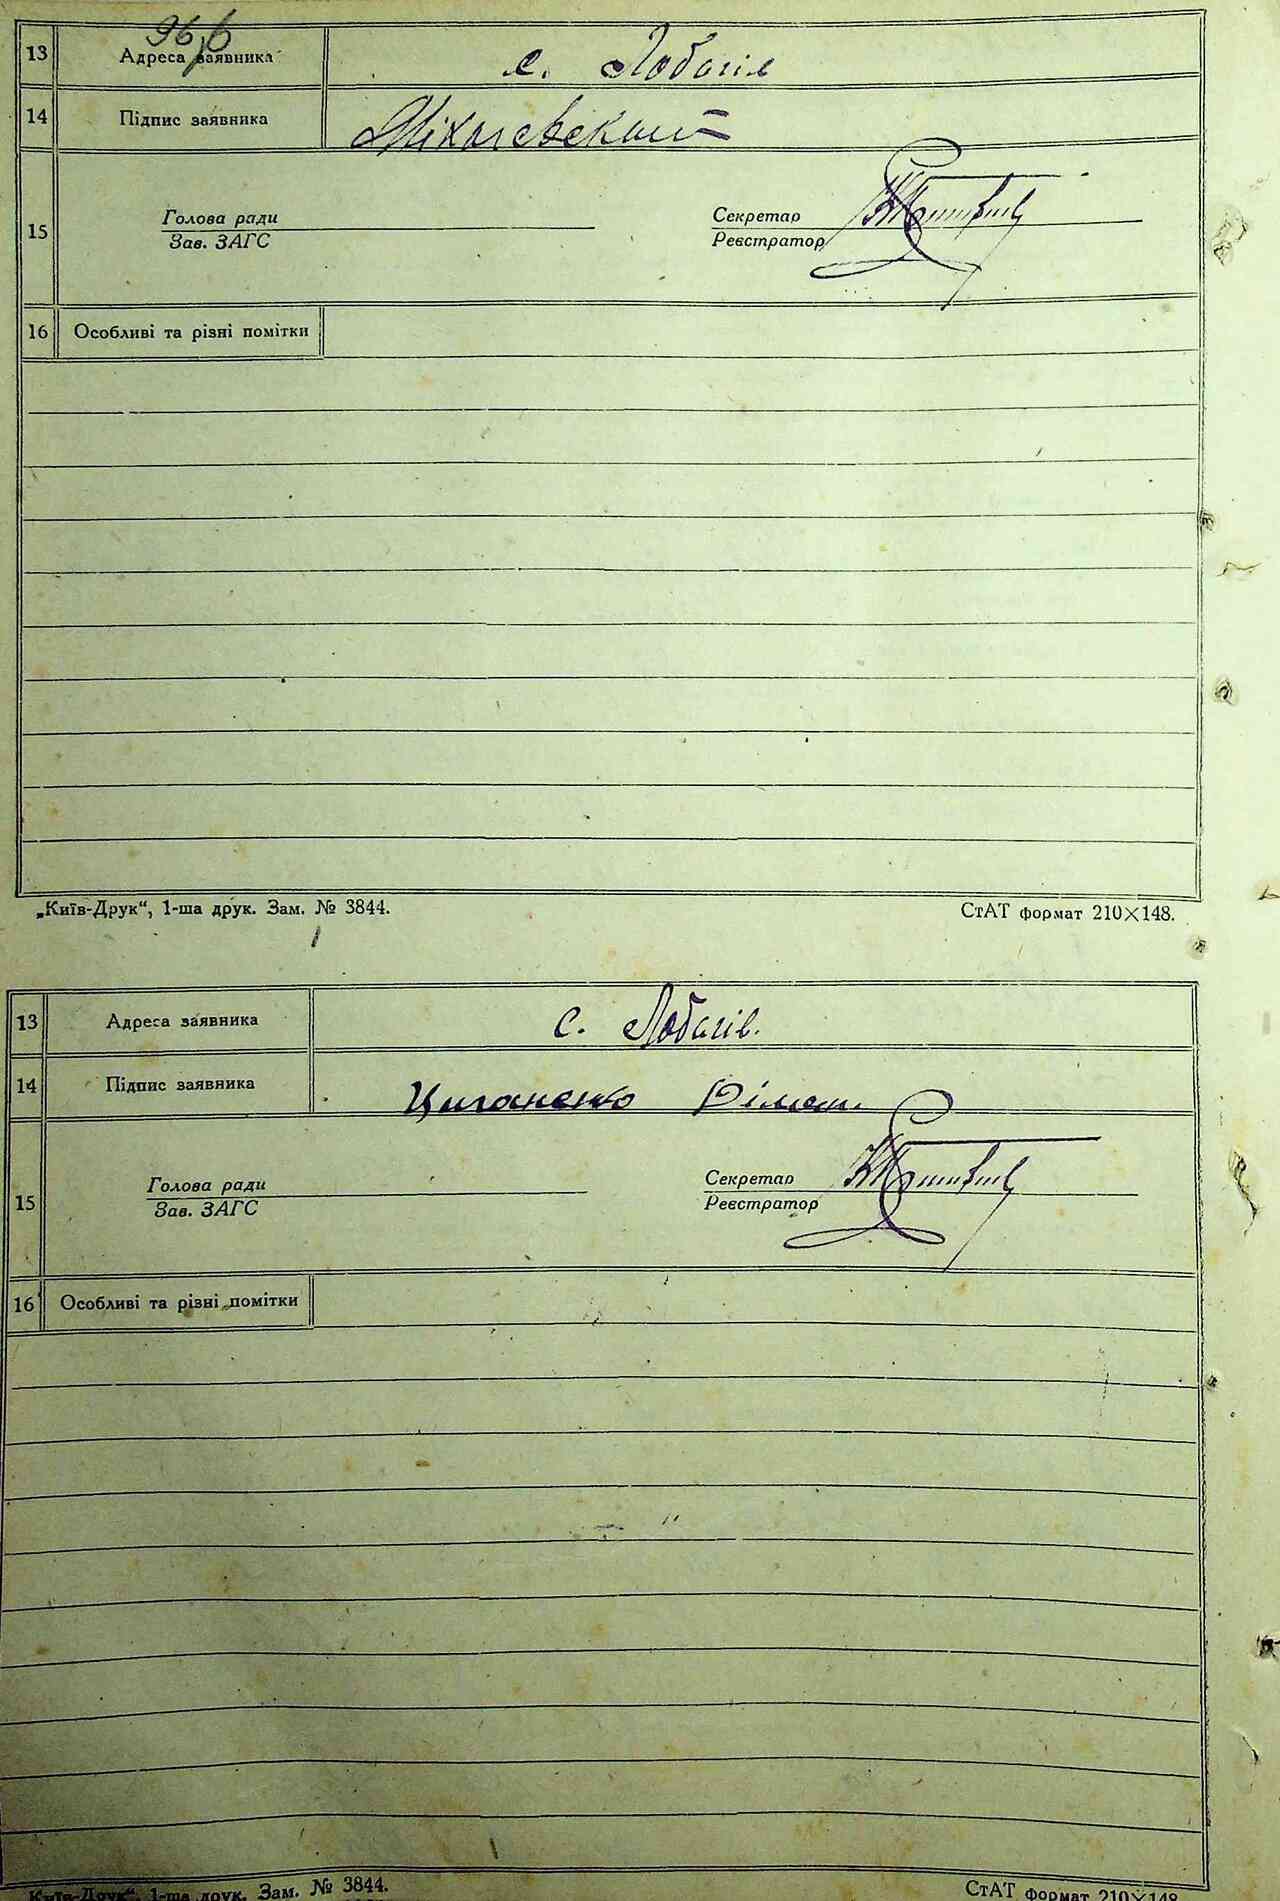 13 Адреса заявника с. Лобачів
14 Підпис заявника Міхалевский
15 Голова ради Секретар
Зав. ЗАГС Реєстратор
16 Особливі та різні помітки
„Київ-Друк“, 1-ша друк. Зам. № 3844. СтАТ формат 210×148.
13 Адреса заявника с. Лобачів.
14 Підпис заявника Циганенко
15 Голова ради Секретар
Зав. ЗАГС Реєстратор
16 Особливі та різні помітки
„Київ-Друк“, 1-ша друк. Зам. № 3844. СтАТ формат 210×148